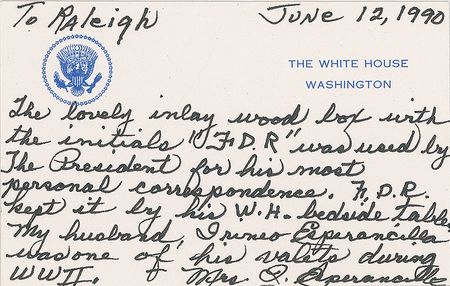 To Raleigh
June 12, 1990
THE WHITE HOUSE
WASHINGTON
The lovely inlay wood box with
the initials "F D R" was used by
The President for his most
personal correspondence. F. D. R.
kept it by his W. H. bedside table.
My husband, Irineo Esperancilla
was one of his valets during
WW II. Mrs. I. Esperancilla